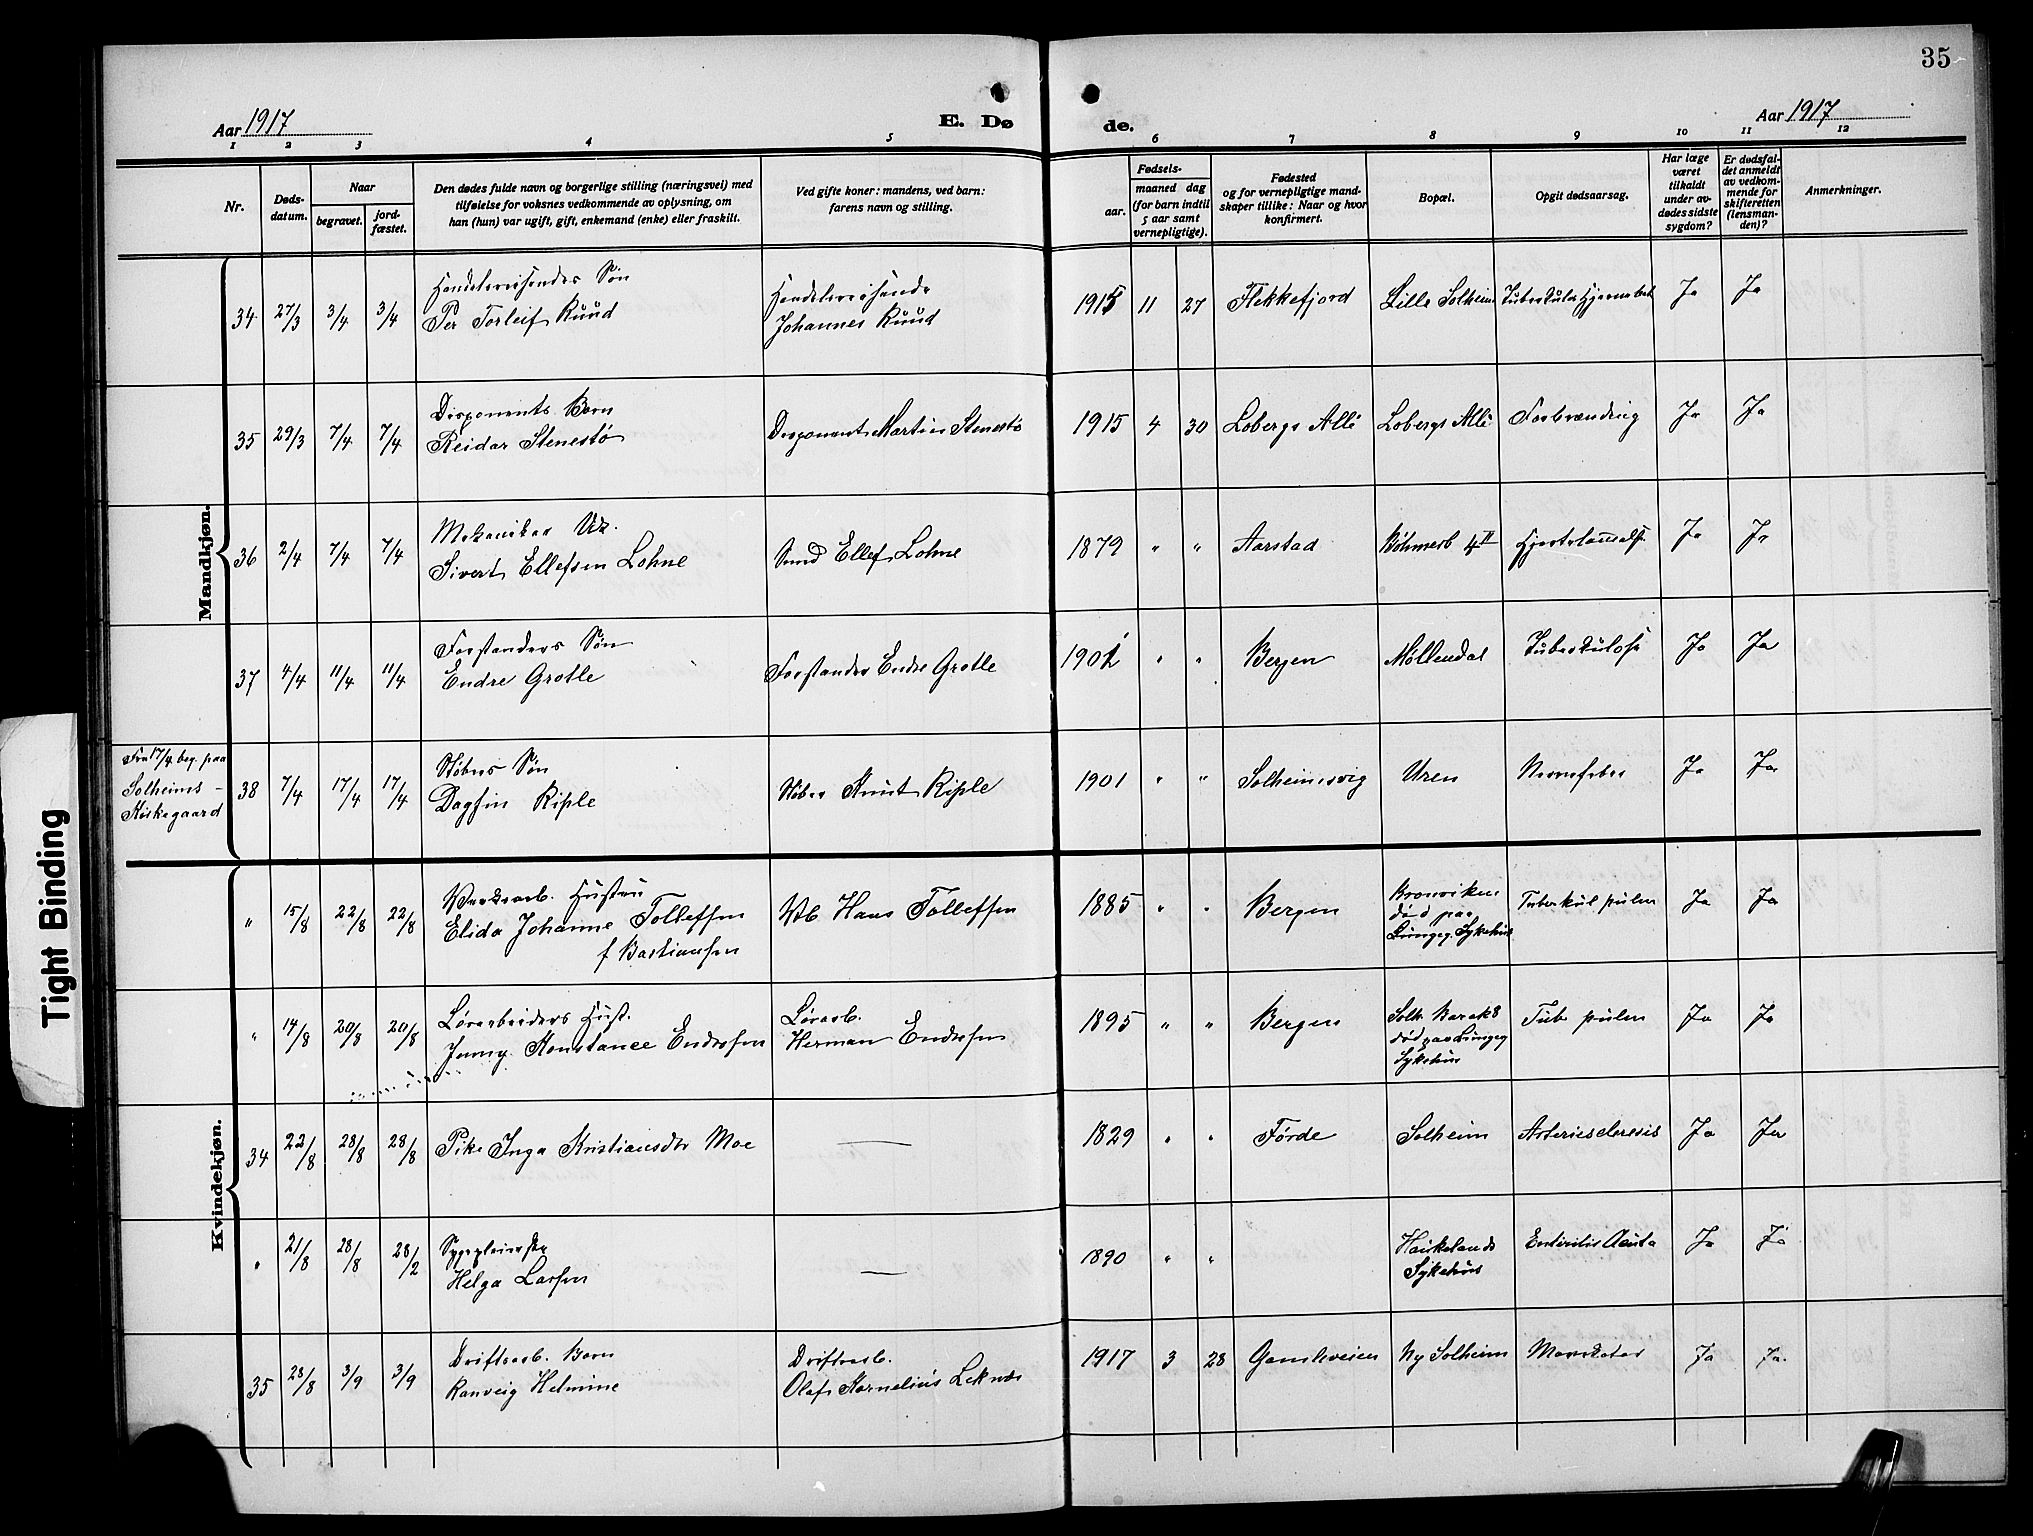 35
Aar 1917
E. Dø
de.
Aar 1917
1 2 3 4 5 6 7 8 9 10 11 12
Nr.
Døds-
datum.
Naar
begravet.
jord-
fæstet.
Den dødes fulde navn og borgerlige stilling (næringsvei) med
tilføielse for voksnes vedkommende av oplysning, om
han (hun) var ugift, gift, enkemand (enke) eller fraskilt.
Ved gifte koner: mandens, ved barn:
farens navn og stilling.
Fødsels-
aar.
maaned dag
(for barn indtil
5 aar samt
vernepligtige).
Fødested
og for vernepligtige mand-
skaper tillike: Naar og hvor
konfirmert.
Bopæl.
Opgit dødsaarsag.
Har læge
været
tilkaldt
under av-
dødes sidste
sygdom?
Er dødsfal-
det anmeldt
av vedkom-
mende for
skifteretten
(lensman-
den)?
Anmerkninger.
Mandkjøn.
Handelsreisendes Søn Handelsreisende
34 27/3 3/4 3/4 Per Torleif Ruud Johannes Ruud 1915 11 27 Flekkefjord Lille Solheim Ja Ja
Disponents Barn
35 29/3 7/4 7/4 Reidar Stenestø Disponent Martin Stenestø 1915 4 30 Lobergs Allé Lobergs Allé Forbrænding Ja Ja
Mekaniker
36 2/4 7/4 7/4 Sivert Ellefsen Lohne Ellef Lohne 1879 " " Aarstad 4 II Ja Ja
Forstanders Søn
37 4/4 11/4 11/4 Endre Grotle Forstander Endre Grotle 1901 " " Bergen Møllendal Tuberkulose Ja Ja
Fra 17/4 beg. paa
Solheims -
Kirkegaard
Støbers Søn
38 7/4 17/4 17/4 Dagfin Riple Støber Knut Riple 1901 " " Solheimsvig Uren Nervefeber Ja Ja
Kvindekjøn.
Verksarb. Hustru
" 15/8 22/8 22/8 Elida Johanne Tollefsen Vb Hans Tollefsen 1885 " " Bergen Tuberkul pulm Ja Ja
f Bastiansen
død paa
Lungeg. Sykehus
Løsarbeiders Hust. Løsarb.
" 14/8 20/8 20/8 Jenny Konstance Endresen Herman Endresen 1895 " " Bergen Solh. Barak 8 Tube pulm Ja Ja
død paa Lungeg
Sykehus
34 22/8 28/8 28/8 Pike Inga Kristiansdtr Moe — 1829 " " Førde Solheim Arteriesclerosis Ja Ja
Sygepleierske
" 21/8 28/8 28/2 Helga Larsen — 1890 " " Haukelands Enteritis Acuta Ja Ja
Sykehus
Driftsarb. Barn Driftsarb.
35 28/8 3/9 3/9 Ranveig Helmine Olaf Kornelius Leknes 1917 3 28 Gamleveien Ny Solheim Ja Ja
Tight Binding